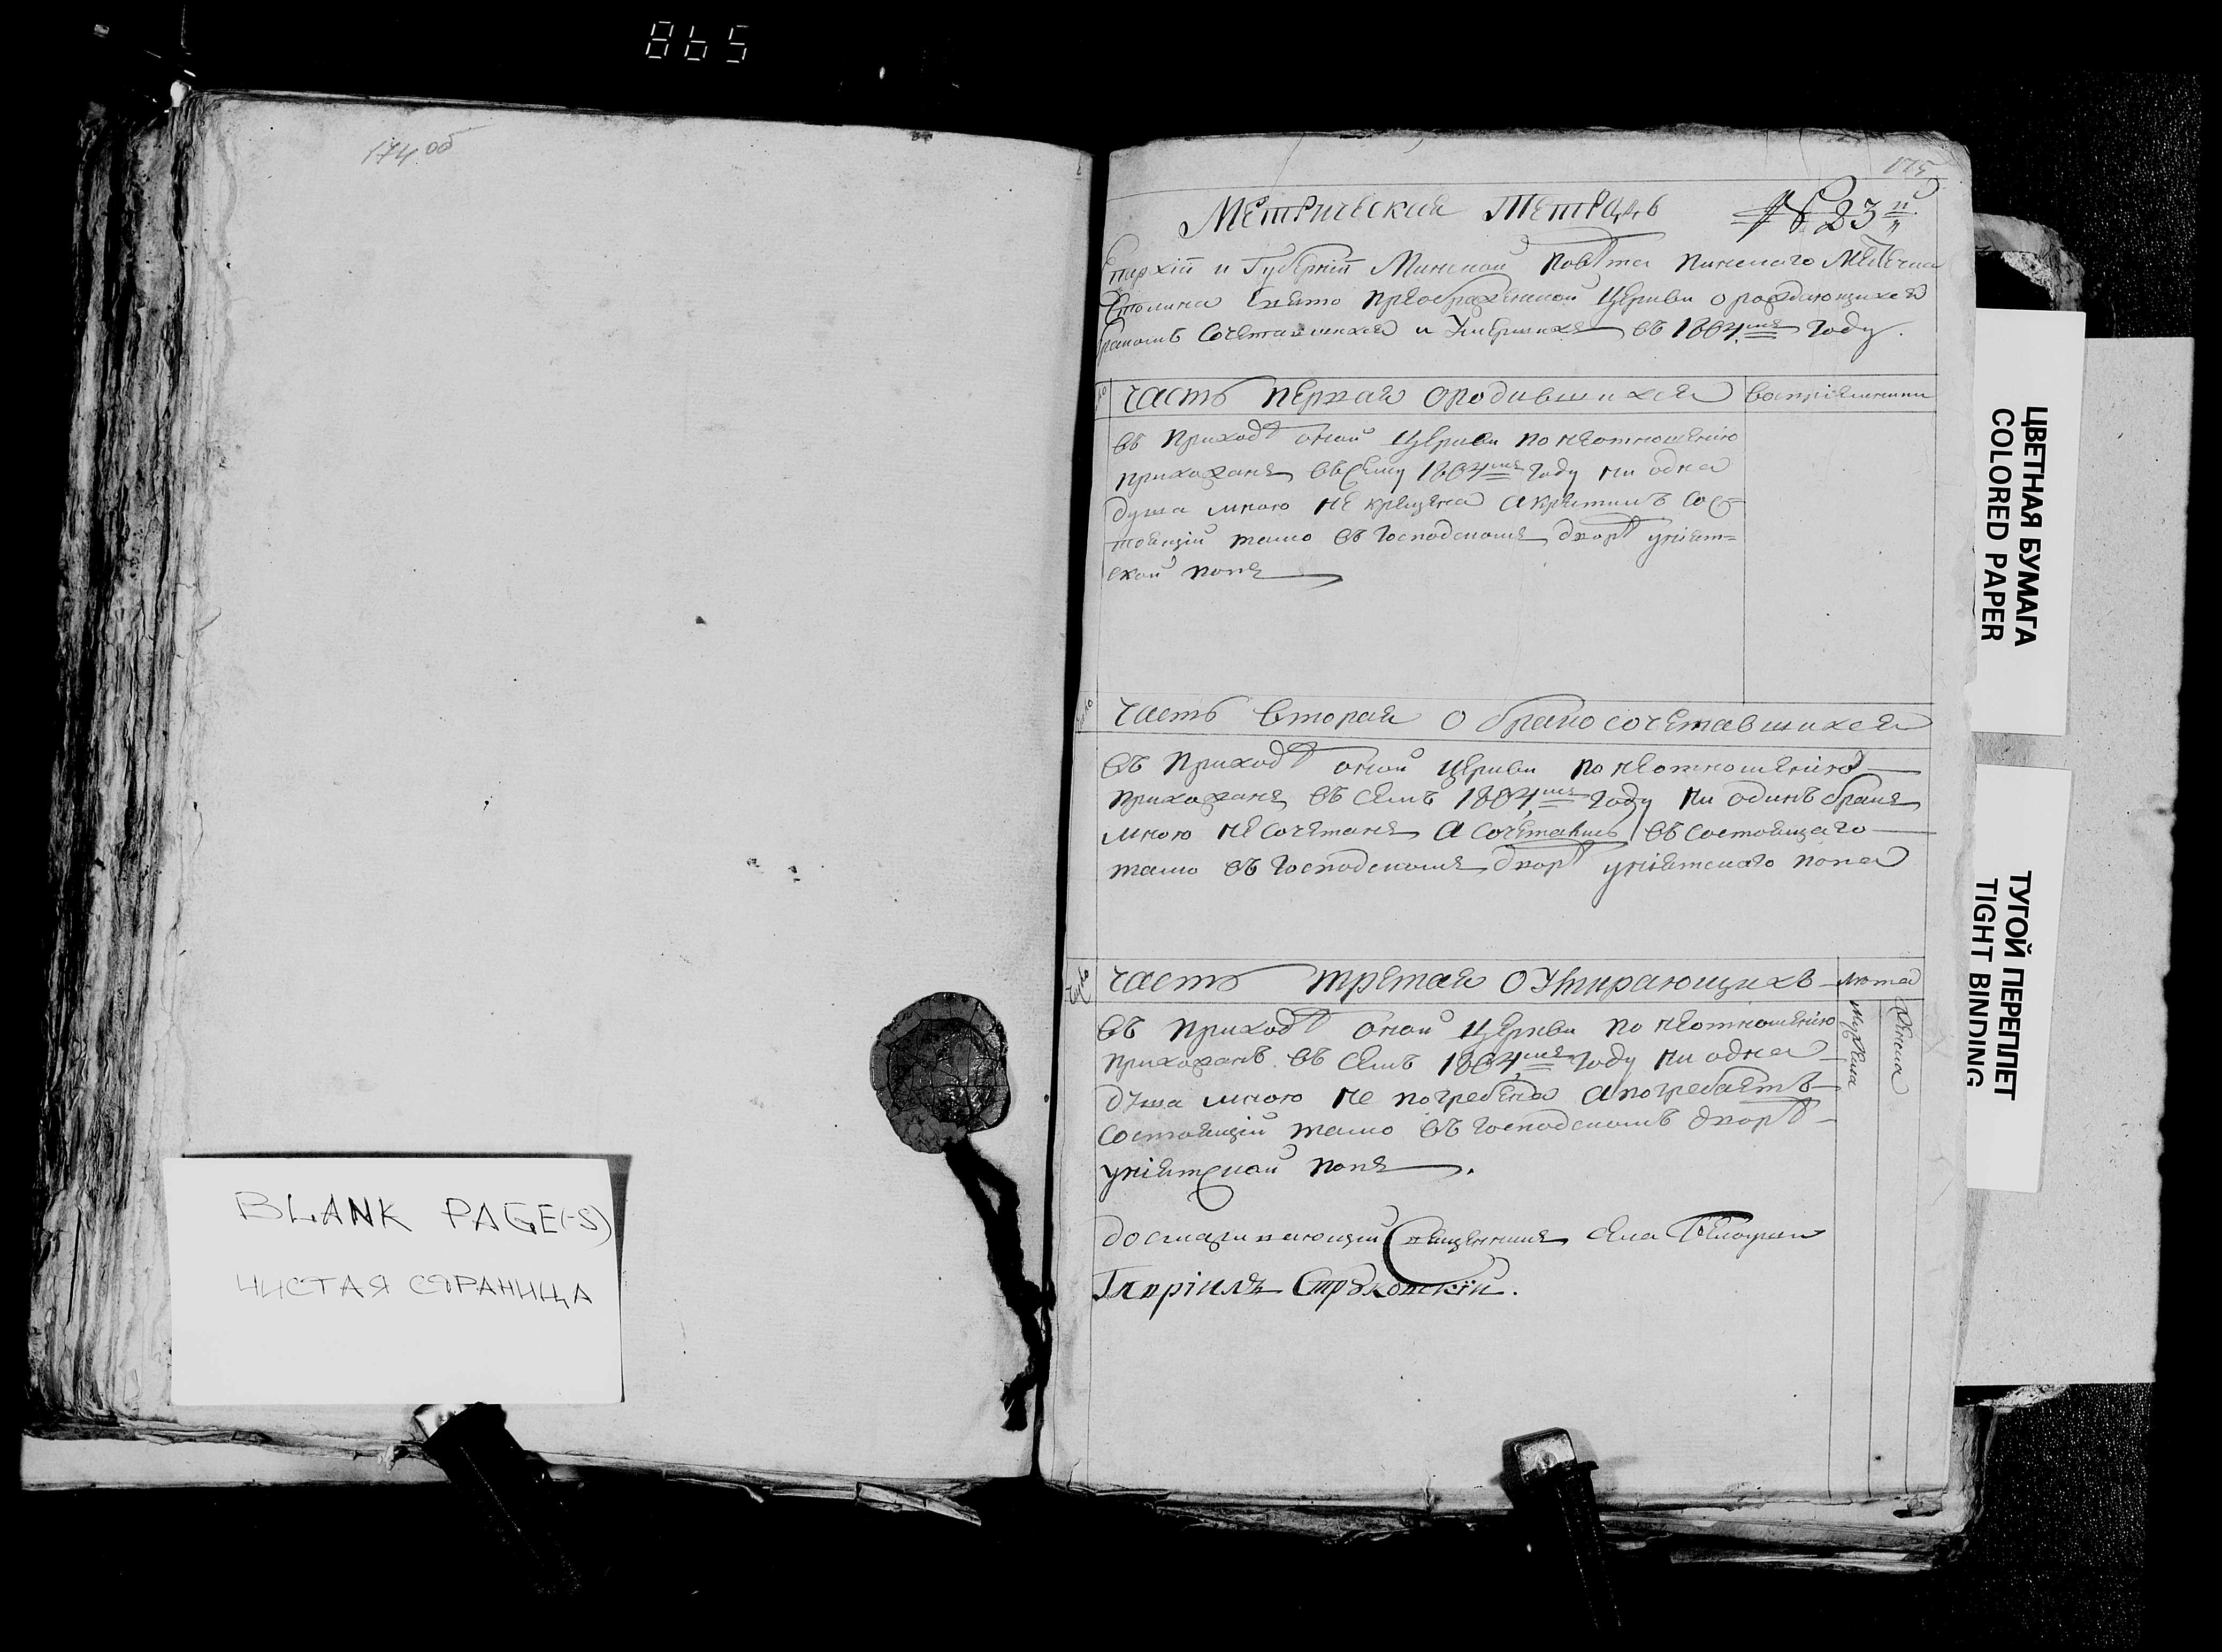 865
174 об
BLANK PAGE(-S)
ЧИСТАЯ СТРАНИЦА
175
Метрическая Тетрадь № 23й
Епархіи и Губерніи Минской Повѣта Пинскаго Местечка
Столина Свято Преображенской Церкви о раждающихся
Бракомъ Сочетавшихся и Умершихъ въ 1804мъ Году.
Часть Первая О родившихся Воспріемники
Въ Приходѣ оной Церкви По неотношенію
прихожанъ въ Семъ 1804мъ Году ни одна
душа мною не крещена а крѣтитъ Сос=
тоящій тамо въ Господскомъ дворѣ уніят=
ской попъ
Часть Вторая О брако сочетавшихся
Въ Приходѣ оной Церкви По неотношенію
прихожанъ въ Семъ 1804мъ Году ни одинъ бракъ
мною не Сочетанъ а Сочетались въ Состоящаго
тамо въ Господскомъ дворѣ уніятскаго попа
Число
Часть Третая О Умирающихъ Лѣта
Мужска Женска
Въ Приходѣ оной Церкви По неотношенію
Прихожанъ въ Семъ 1804мъ Году ни одна
душа мною не погребена а погребаетъ
Состоящій тамо въ Господскомъ дворѣ
уніятской попъ.
досматривающій Священникъ Села
Гавріилъ Страховскій.
ЦВЕТНАЯ БУМАГА
COLORED PAPER
ТУГОЙ ПЕРЕПЛЕТ
TIGHT BINDING